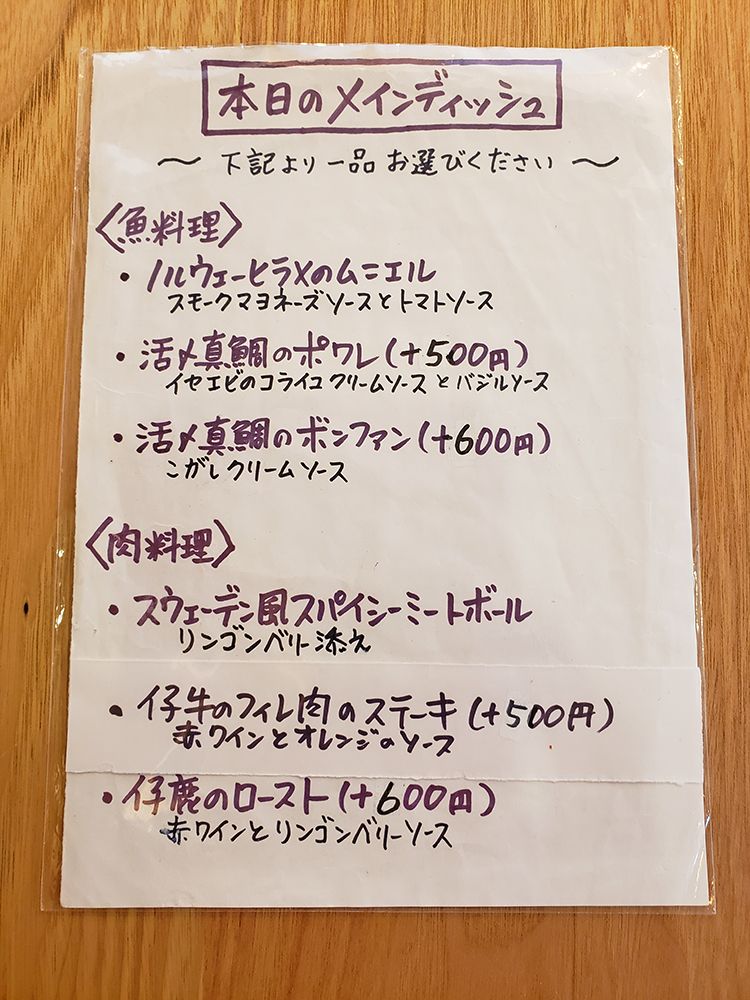 本日のメインディッシュ
〜 下記より一品お選びください 〜
〈魚料理〉
・ノルウェーヒラメのムニエル
スモークマヨネーズソースとトマトソース
・活〆真鯛のポワレ(+500円)
イセエビのコライユクリームソースとバジルソース
・活〆真鯛のボンファン(+600円)
こがしクリームソース
〈肉料理〉
・スウェーデン風スパイシーミートボール
リンゴンベリー添え
・仔牛のフィレ肉のステーキ(+500円)
赤ワインとオレンジのソース
・仔鹿のロースト(+600円)
赤ワインとリンゴンベリーソース